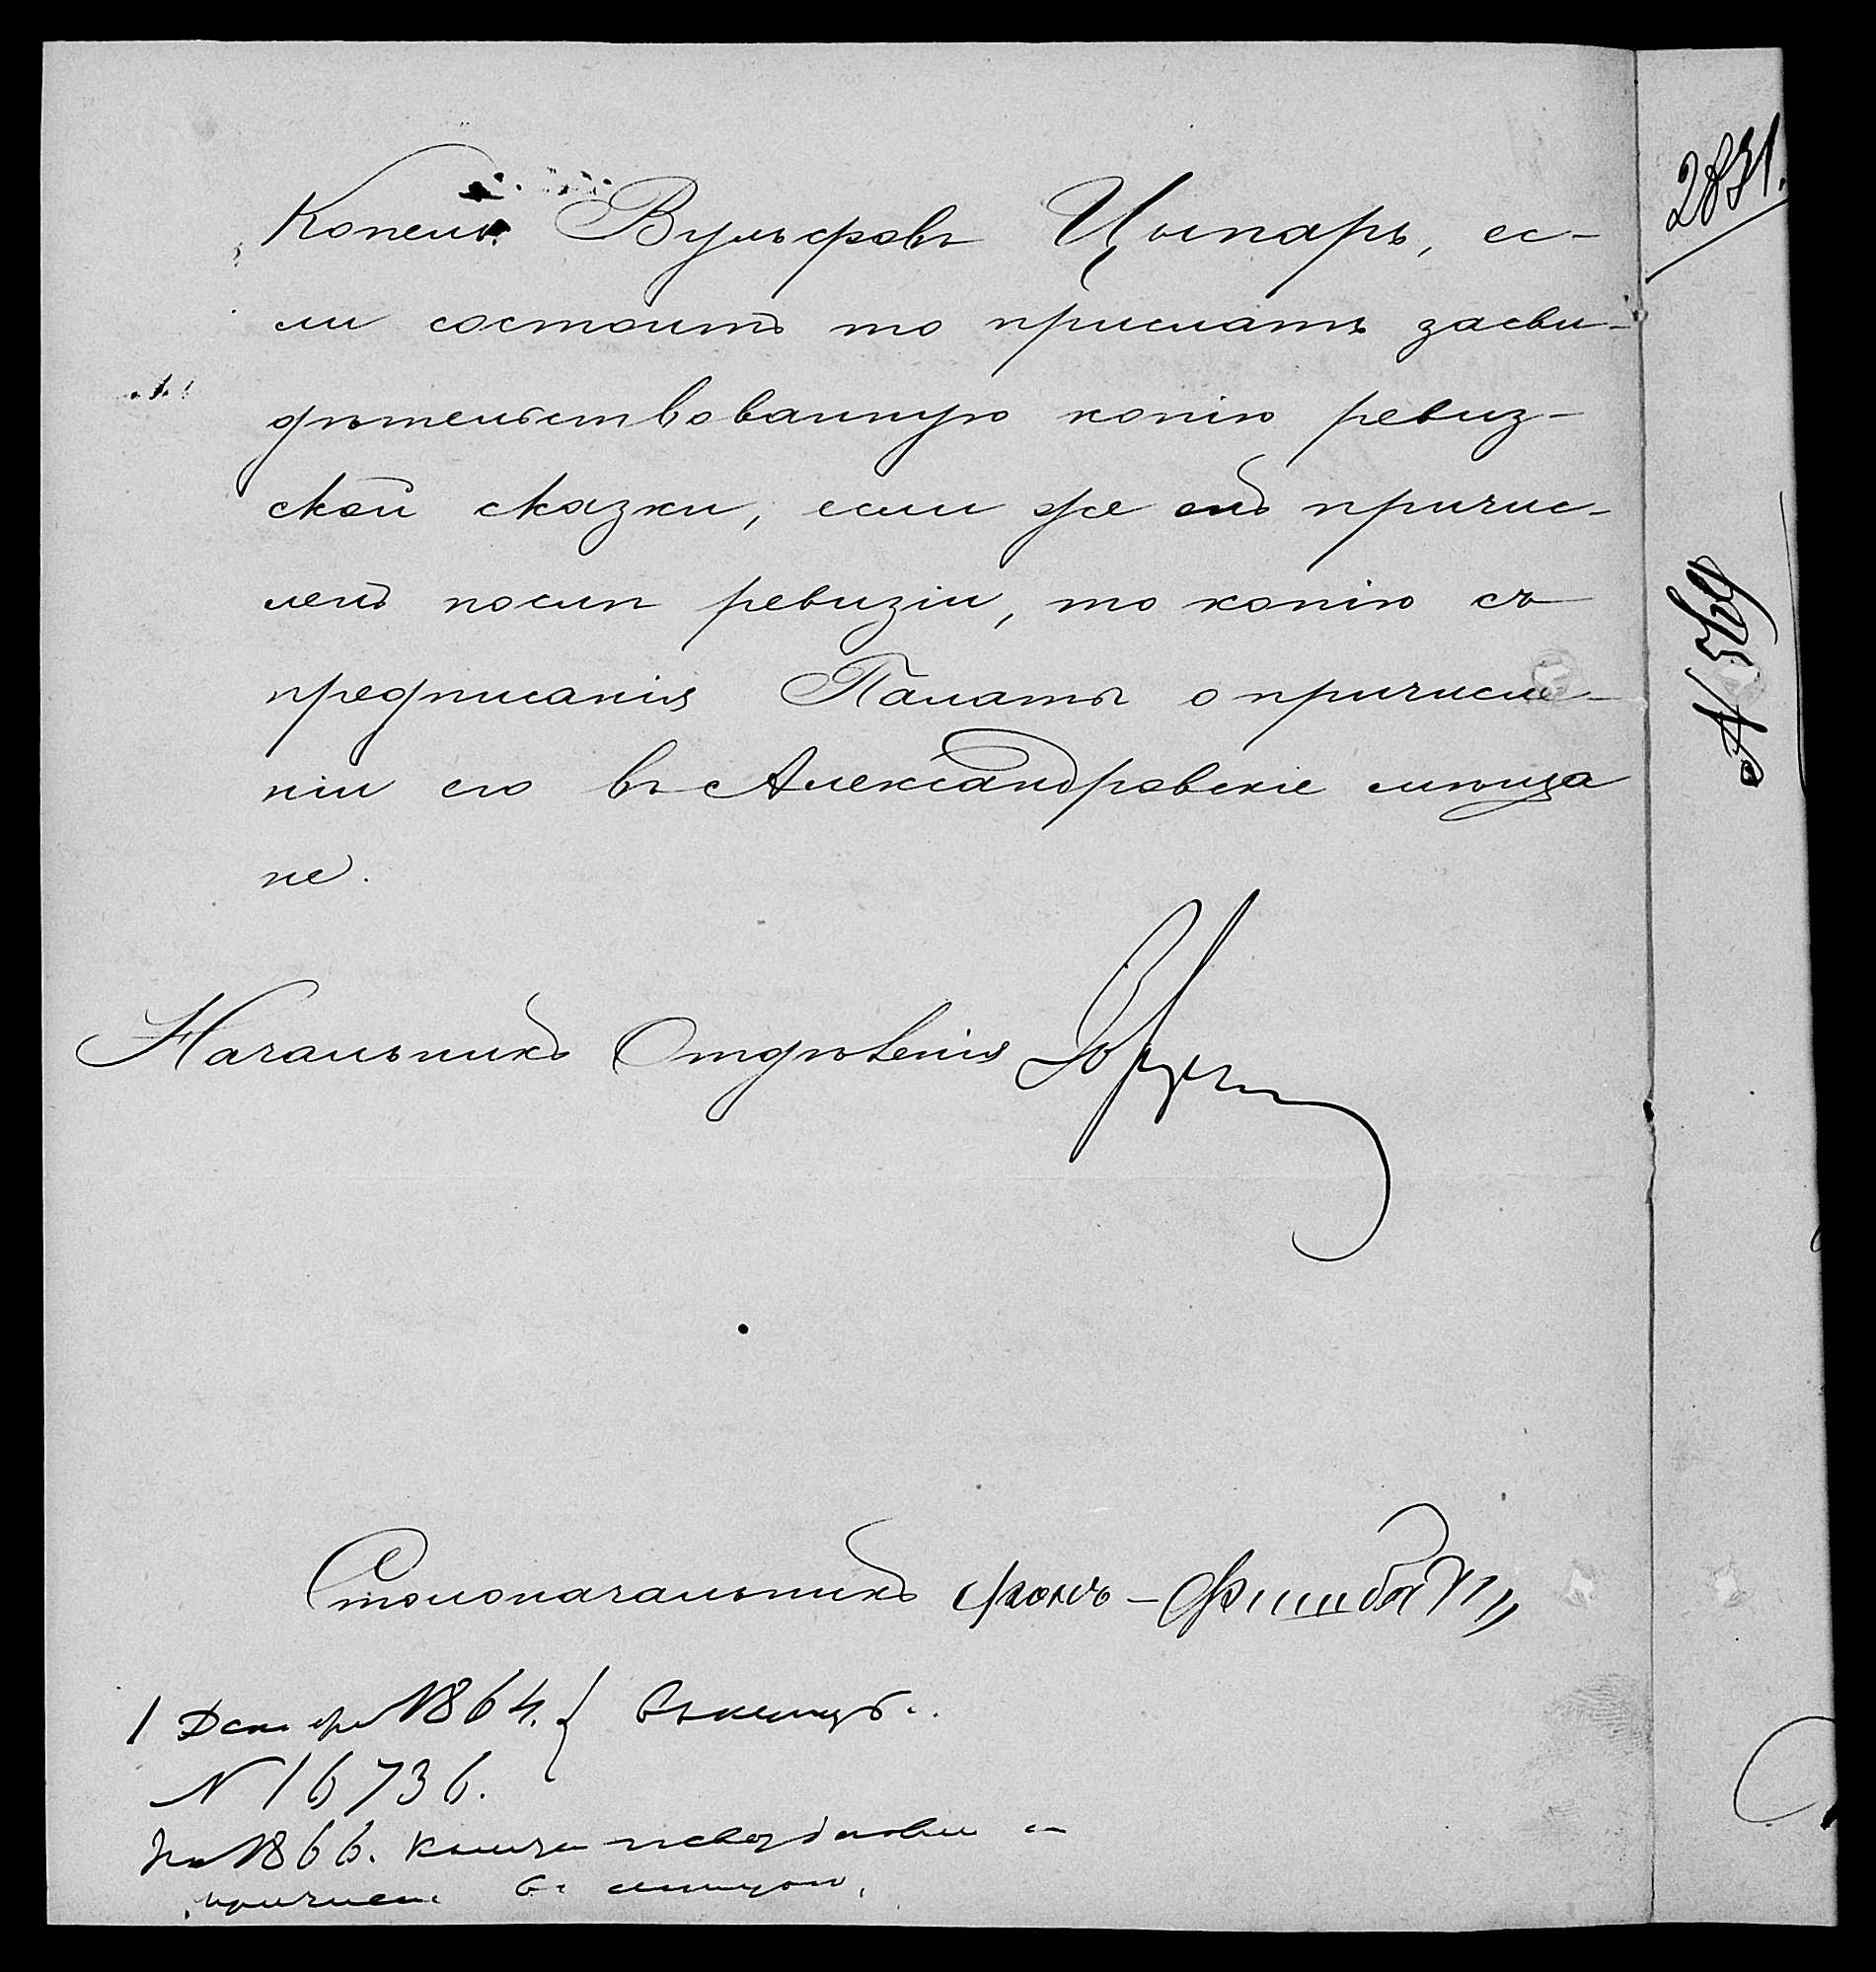 Копель Вульфовъ Цыпаръ, ес-
ли состоитъ то прислать засви-
дѣтельствованную копію ревиз-
ской сказки, если же онъ причис-
ленъ послѣ ревизіи, то копію съ
предписанія Палаты о причисле-
ніи его въ Александровскіе мѣща
не.
Начальникъ Отдѣленія
Столоначальникъ фонъ-
1 Декабря 1864.
N 16736.
1866.
2831.
N 569